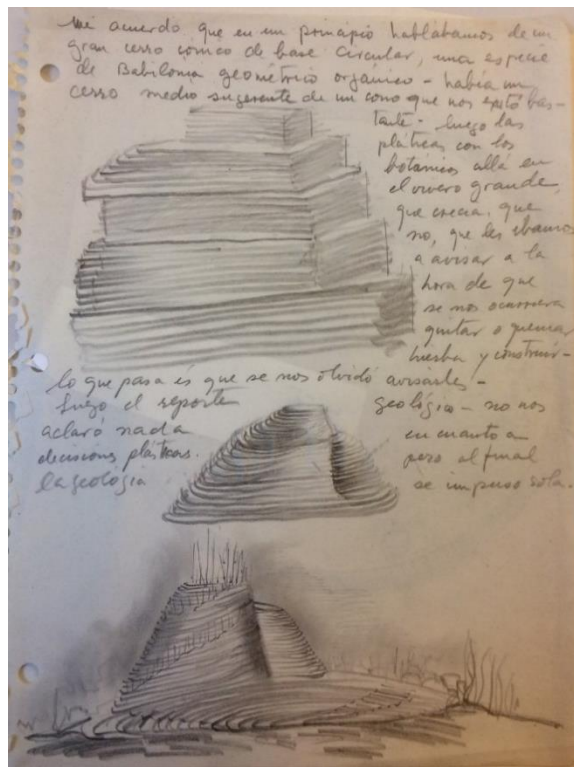 Me acuerdo que en un principio hablábamos de un
gran cerro cónico de base circular, una especie
de Babilonia geométrico orgánico - había un
cerro medio sugerente de un cono que nos exitó bas-
tante - luego las
pláticas con los
botánicos allá en
el vivero grande,
que crecía, que
no, que les íbamos
a avisar a la
hora de que
se nos ocurriera
quitar o quemar
hierba y construir -
lo que pasa es que se nos olvidó avisarles -
Luego el reporte geológico - no nos
aclaró nada en cuanto a
decisiones plásticas. pero al final
la geología se impuso sola.